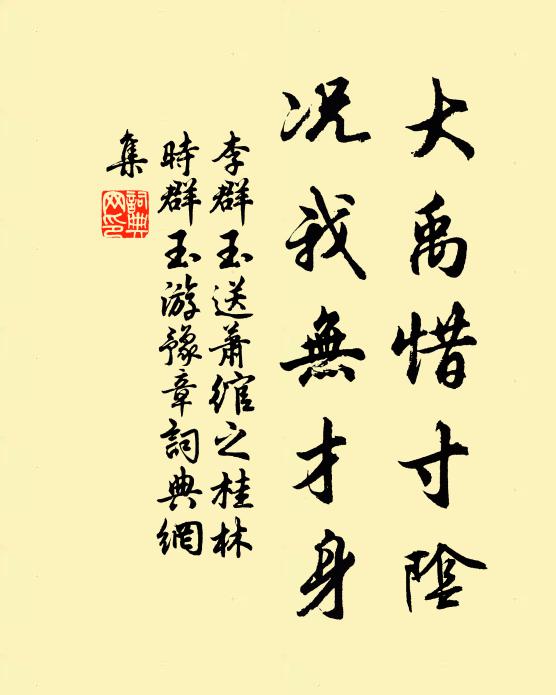 大禹惜寸陰
況我無才身
李群玉送蕭綰之桂林
時群玉游豫章詞典網
集
詞典网印